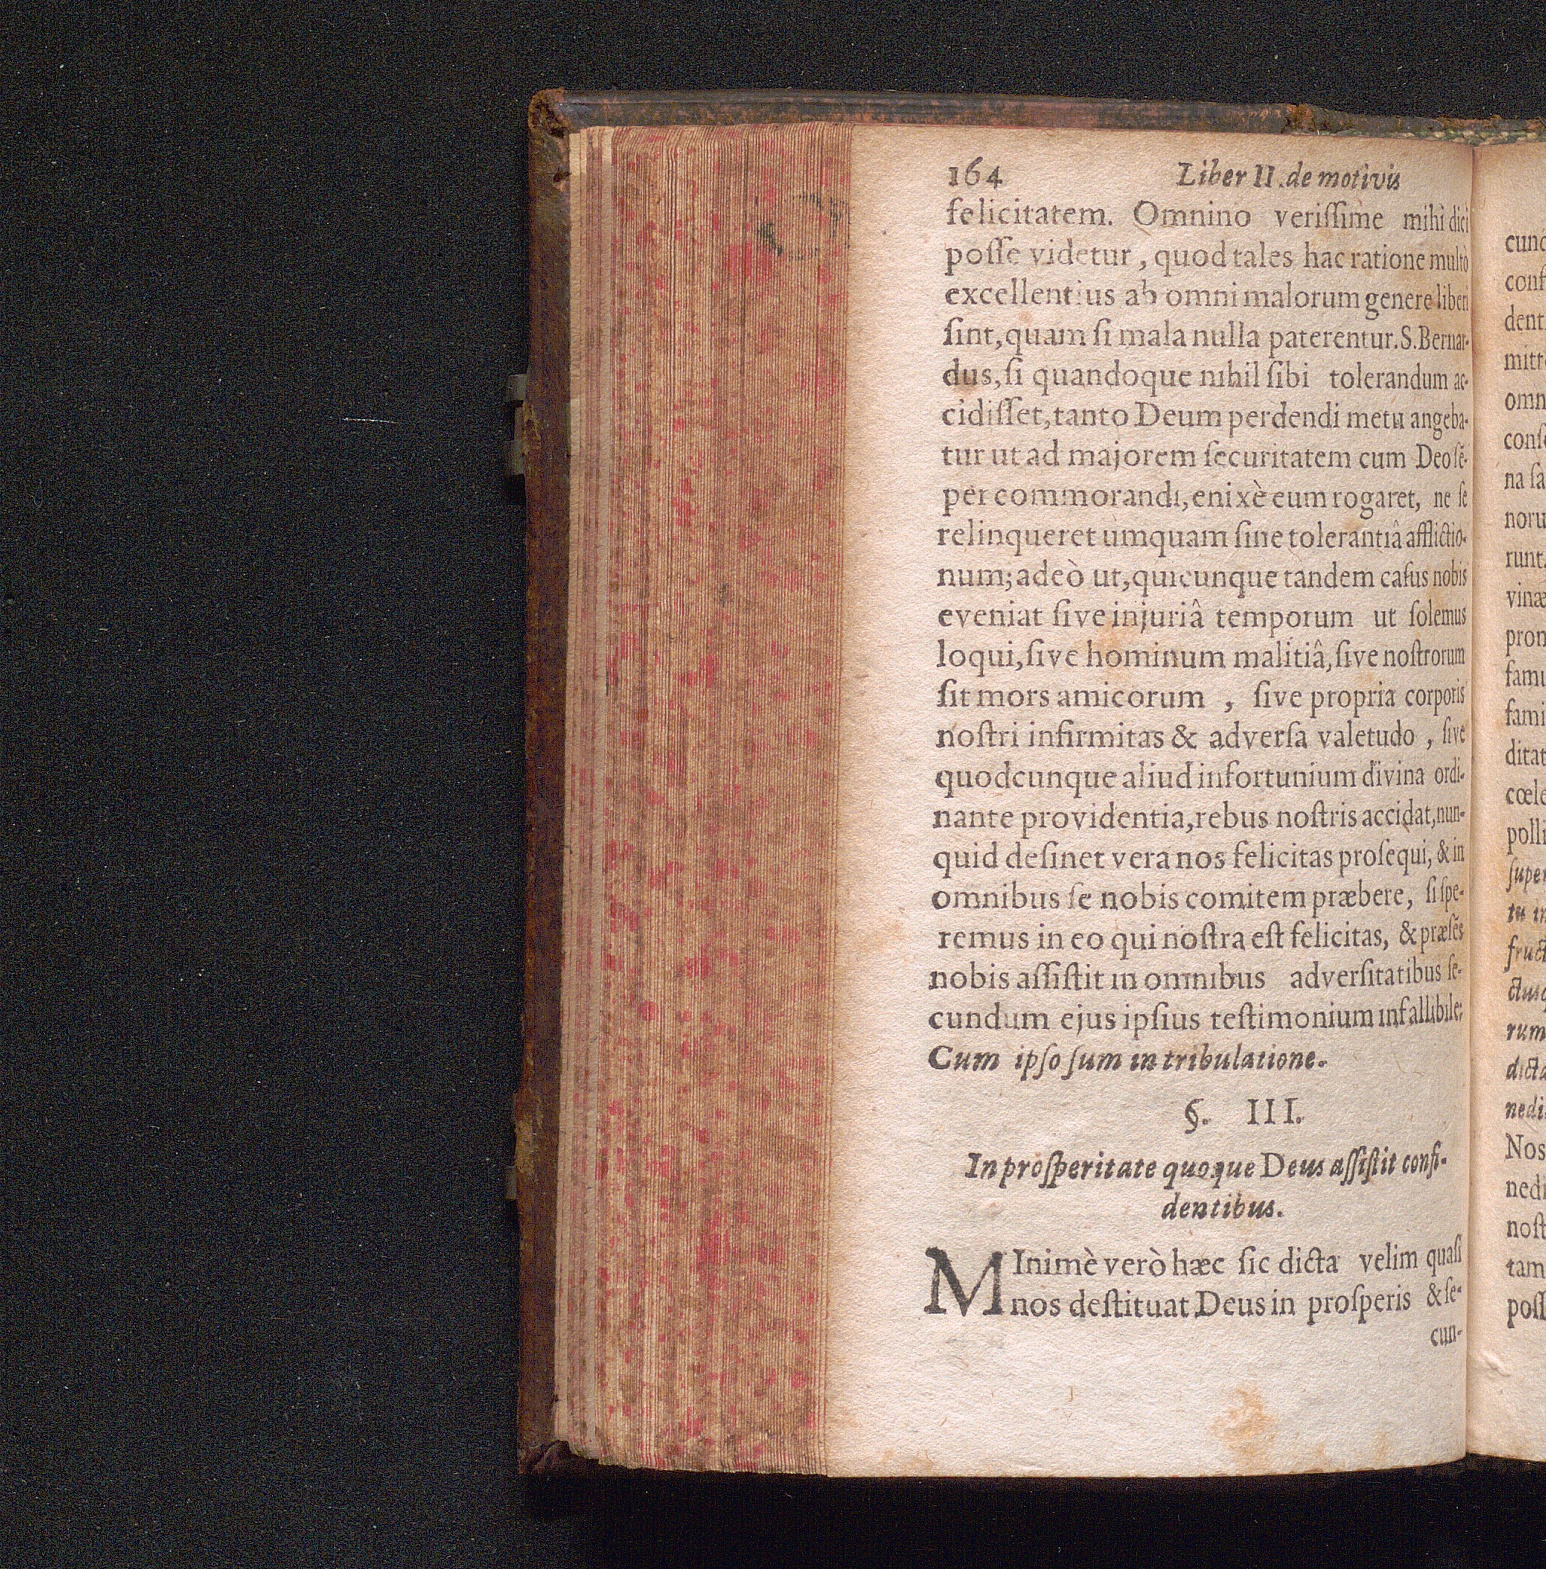 164 Liber II. de motivis
felicitatem. Omnino veriſſime mihi dici
poſſe videtur, quod tales hac ratione multò
excellentius ab omni malorum genere liberi
ſint, quam ſi mala nulla paterentur. S. Bernar-
dus, ſi quandoque nihil ſibi tolerandum ac-
cidiſſet, tanto Deum perdendi metu angeba-
tur ut ad majorem ſecuritatem cum Deo ſē-
per commorandi, enixè eum rogaret, ne ſe
relinqueret umquam ſine tolerantiâ afflictio-
num; adeò ut, quicunque tandem caſus nobis
eveniat ſive injuriâ temporum ut ſolemus
loqui, ſive hominum malitiâ, ſive noſtrorum
ſit mors amicorum, ſive propria corporis
noſtri infirmitas & adverſa valetudo, ſive
quodcunque aliud infortunium divina ordi-
nante providentia, rebus noſtris accidat, nun-
quid deſinet vera nos felicitas proſequi, & in
omnibus ſe nobis comitem præbere, ſi ſpe-
remus in eo qui noſtra eſt felicitas, & præſēs
nobis aſſiſtit in omnibus adverſitatibus ſe-
cundum ejus ipſius teſtimonium infallibile:
Cum ipſo ſum in tribulatione.
§. III.
In proſperitate quoque Deus aſſiſtit confi-
dentibus.
MInimè verò hæc ſic dicta velim quaſi
nos deſtituat Deus in proſperis & ſe-
cun-